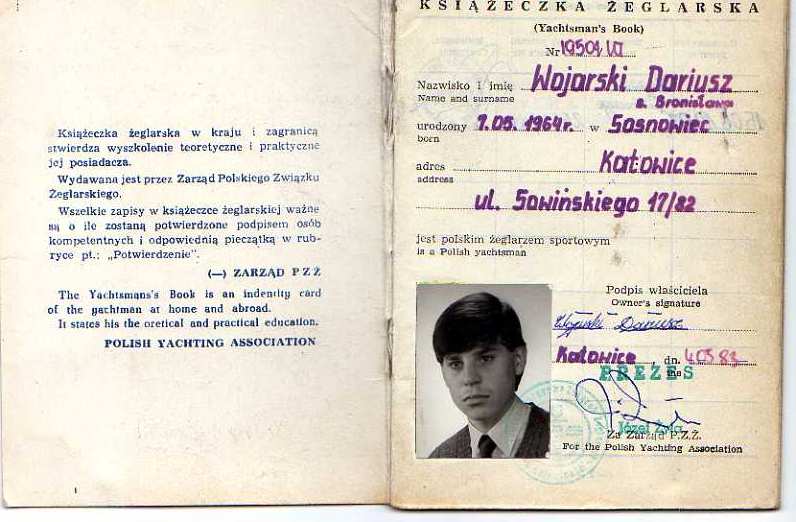 Książeczka żeglarska w kraju i zagranicą
stwierdza wyszkolenie teoretyczne i praktyczne
jej posiadacza.
Wydawana jest przez Zarząd Polskiego Związku
Żeglarskiego.
Wszelkie zapisy w książeczce żeglarskiej ważne
są o ile zostaną potwierdzone podpisem osób
kompetentnych i odpowiednią pieczątką w rub-
ryce pt.: „Potwierdzenie".
(—) ZARZĄD PZŻ
The Yachtsmans's Book is an indentity card
of the yachtman at home and abroad.
It states his the oretical and practical education.
POLISH YACHTING ASSOCIATION
1
KSIĄŻECZKA ŻEGLARSKA
(Yachtsman's Book)
Nr 19501/VI
Nazwisko i imię Wojarski Dariusz
Name and surname s. Bronisława
urodzony 7.05.1964r. w Sosnowiec
born
adres Katowice
address
ul. Sowińskiego 17/82
jest polskim żeglarzem sportowym
is a Polish yachtsman
Podpis właściciela
Owner's signature
Wojarski Dariusz
Katowice, dn. 4.05.83
the
PREZES
Józef Żyła
Za Zarząd P.Z.Ż.
For the Polish Yachting Association